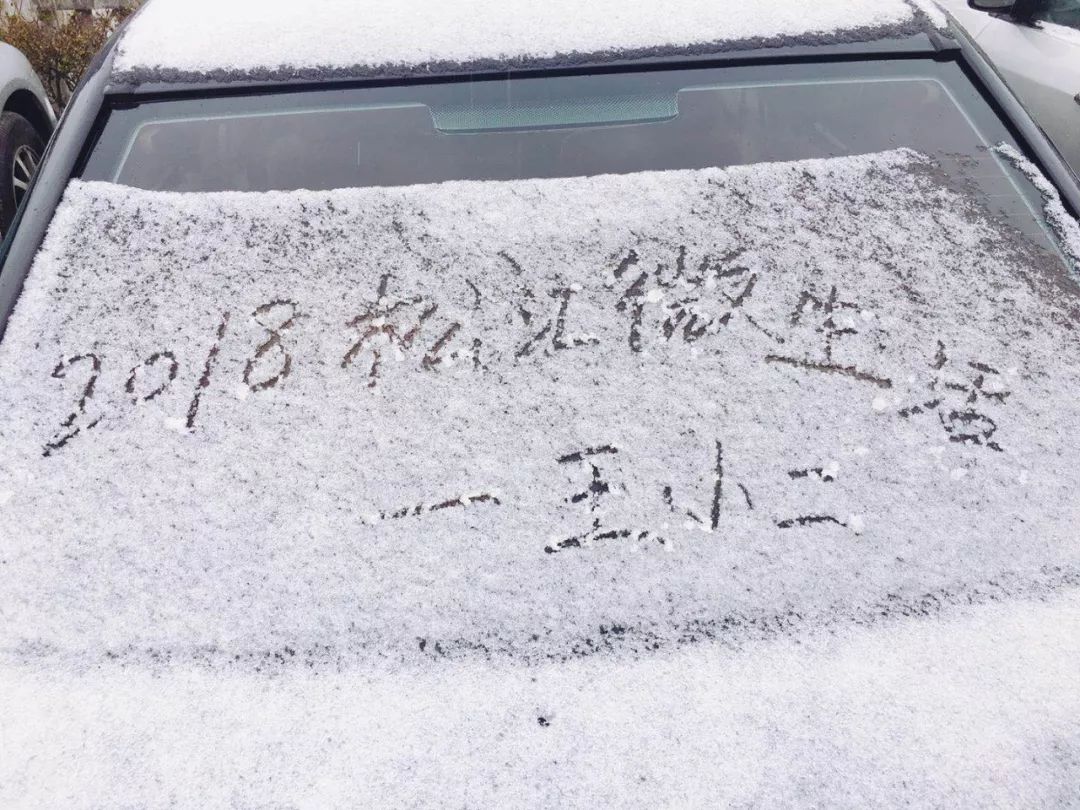 2018松江微生活
一王小二